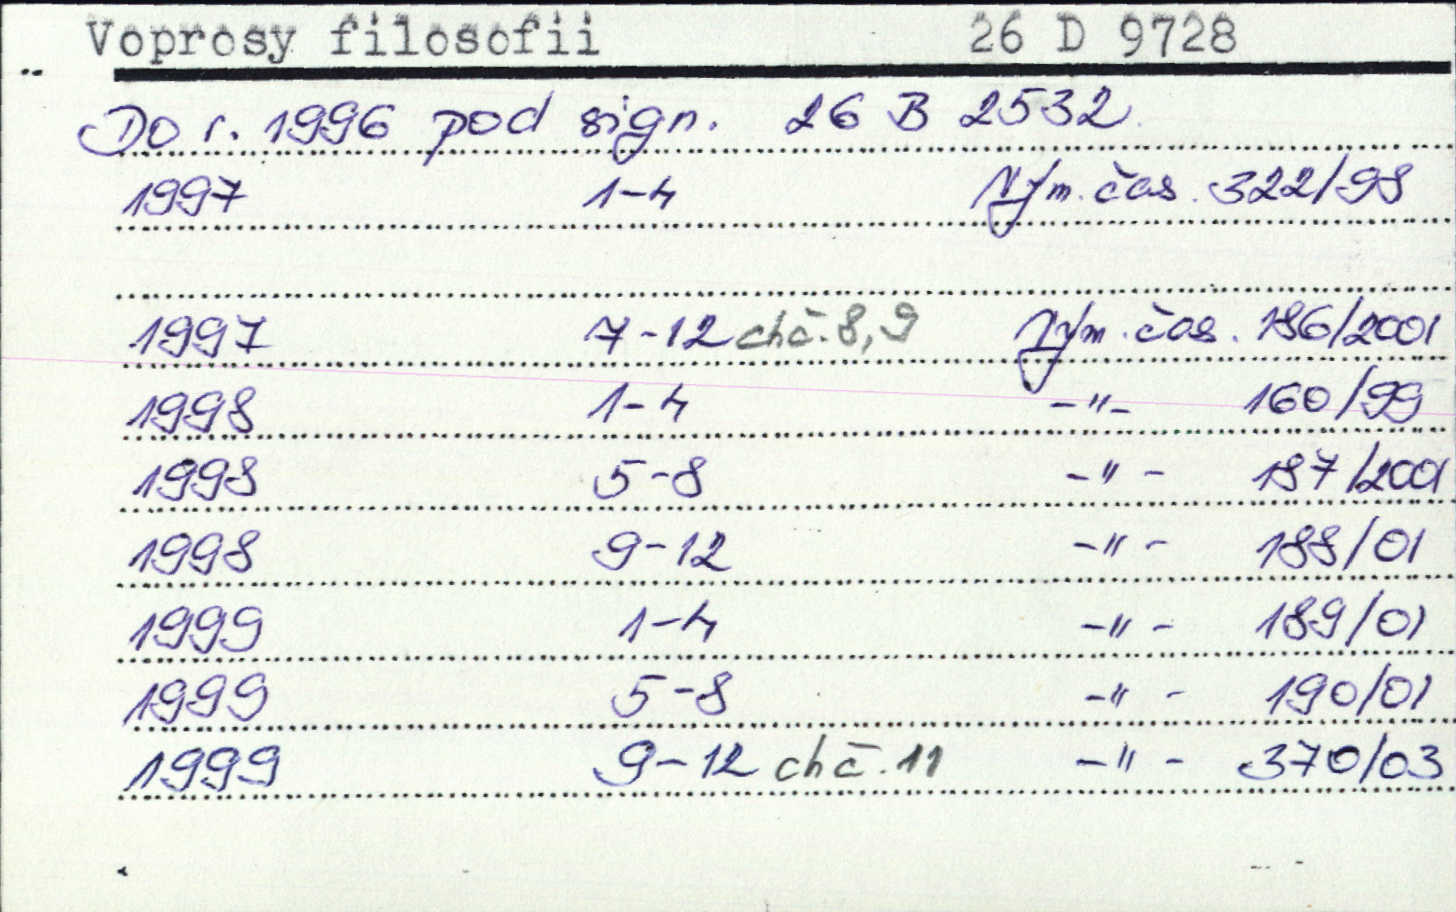 Voprosy filosofii 26 D 9728
Do r. 1996 pod sign. 26 B 2532
1997 1-4 Vým. čas. 322/98
1997 7-12 chč. 8, 9 Vým. čas. 186/2001
1998 1-4 -"- 160/99
1998 5-8 -"- 187/2001
1998 9-12 -"- 188/01
1999 1-4 -"- 189/01
1999 5-8 -"- 190/01
1999 9-12 chč. 11 -"- 370/03